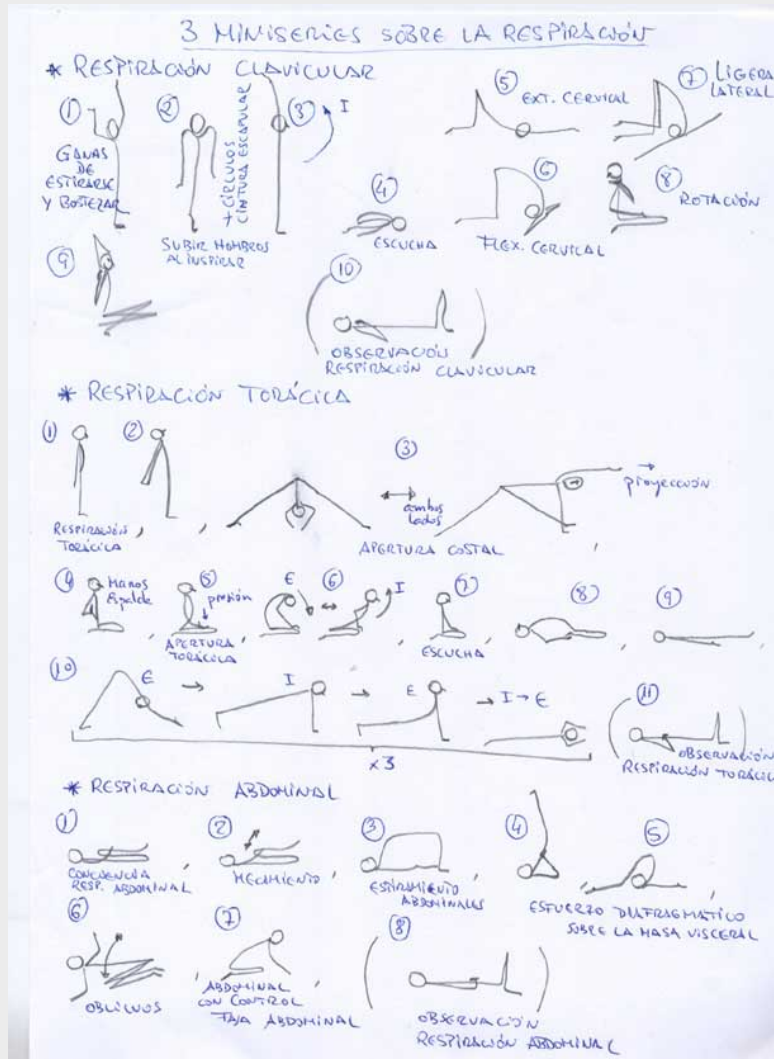 3 MINISERIES SOBRE LA RESPIRACIÓN
* RESPIRACIÓN CLAVICULAR
①
GANAS
DE
ESTIRARSE
Y BOSTEZAR
②
SUBIR HOMBROS
AL INSPIRAR
+ CÍRCULOS
CINTURA ESCAPULAR
③
I
④
ESCUCHA
⑤
EXT. CERVICAL
⑥
FLEX. CERVICAL
⑦ LIGERA
LATERAL
⑧
ROTACIÓN
⑨
⑩
OBSERVACIÓN
RESPIRACIÓN CLAVICULAR
* RESPIRACIÓN TORÁCICA
①
RESPIRACIÓN
TORÁCICA,
②
,
③
ambos
lados
proyección
APERTURA COSTAL,
④
Manos
Espalda
,
⑤
presión
APERTURA
TORÁCICA
,
E
⑥
I
,
⑦
ESCUCHA,
⑧
,
⑨
⑩
E → I → E → I → E
x3
⑪
OBSERVACIÓN
RESPIRACIÓN TORÁCICA
* RESPIRACIÓN ABDOMINAL
①
CONCIENCIA
RESP. ABDOMINAL
,
②
MECIMIENTO,
③
ESTIRAMIENTO
ABDOMINALES
,
④
,
⑤
,
ESFUERZO DIAFRAGMÁTICO
SOBRE LA MASA VISCERAL
⑥
OBLICUOS
,
⑦
ABDOMINAL
CON CONTROL
FAJA ABDOMINAL
,
⑧
OBSERVACIÓN
RESPIRACIÓN ABDOMINAL